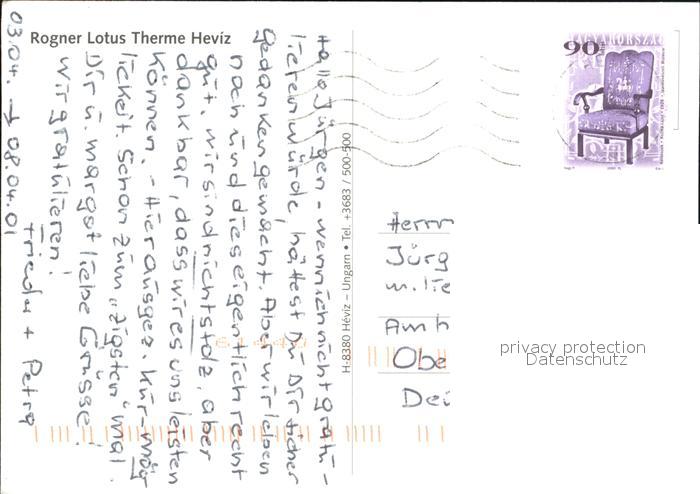 Rogner Lotus Therme Hevíz
Hallo Jürgen - wenn ich nicht gratu-
lieren würde, hättest Du Dir sicher
Gedanken gemacht. Aber wir leben
noch und dies eigentlich recht
gut. Wir sind nicht stolz, aber
dankbar, dass wir es uns leisten
können. - Hier ausgez. Kur-mög
lichkeit. Schon zum "zigsten" mal.
Dir u. Margot liebe Grüsse!
Wir gratulieren!
Frieder + Petra
03.04. → 08.04.01
H-8380 Hévíz – Ungarn • Tel. +3683 / 500-500
MAGYARORSZÁG
90
Herrn
Jürg
Obe
privacy protection
Datenschutz